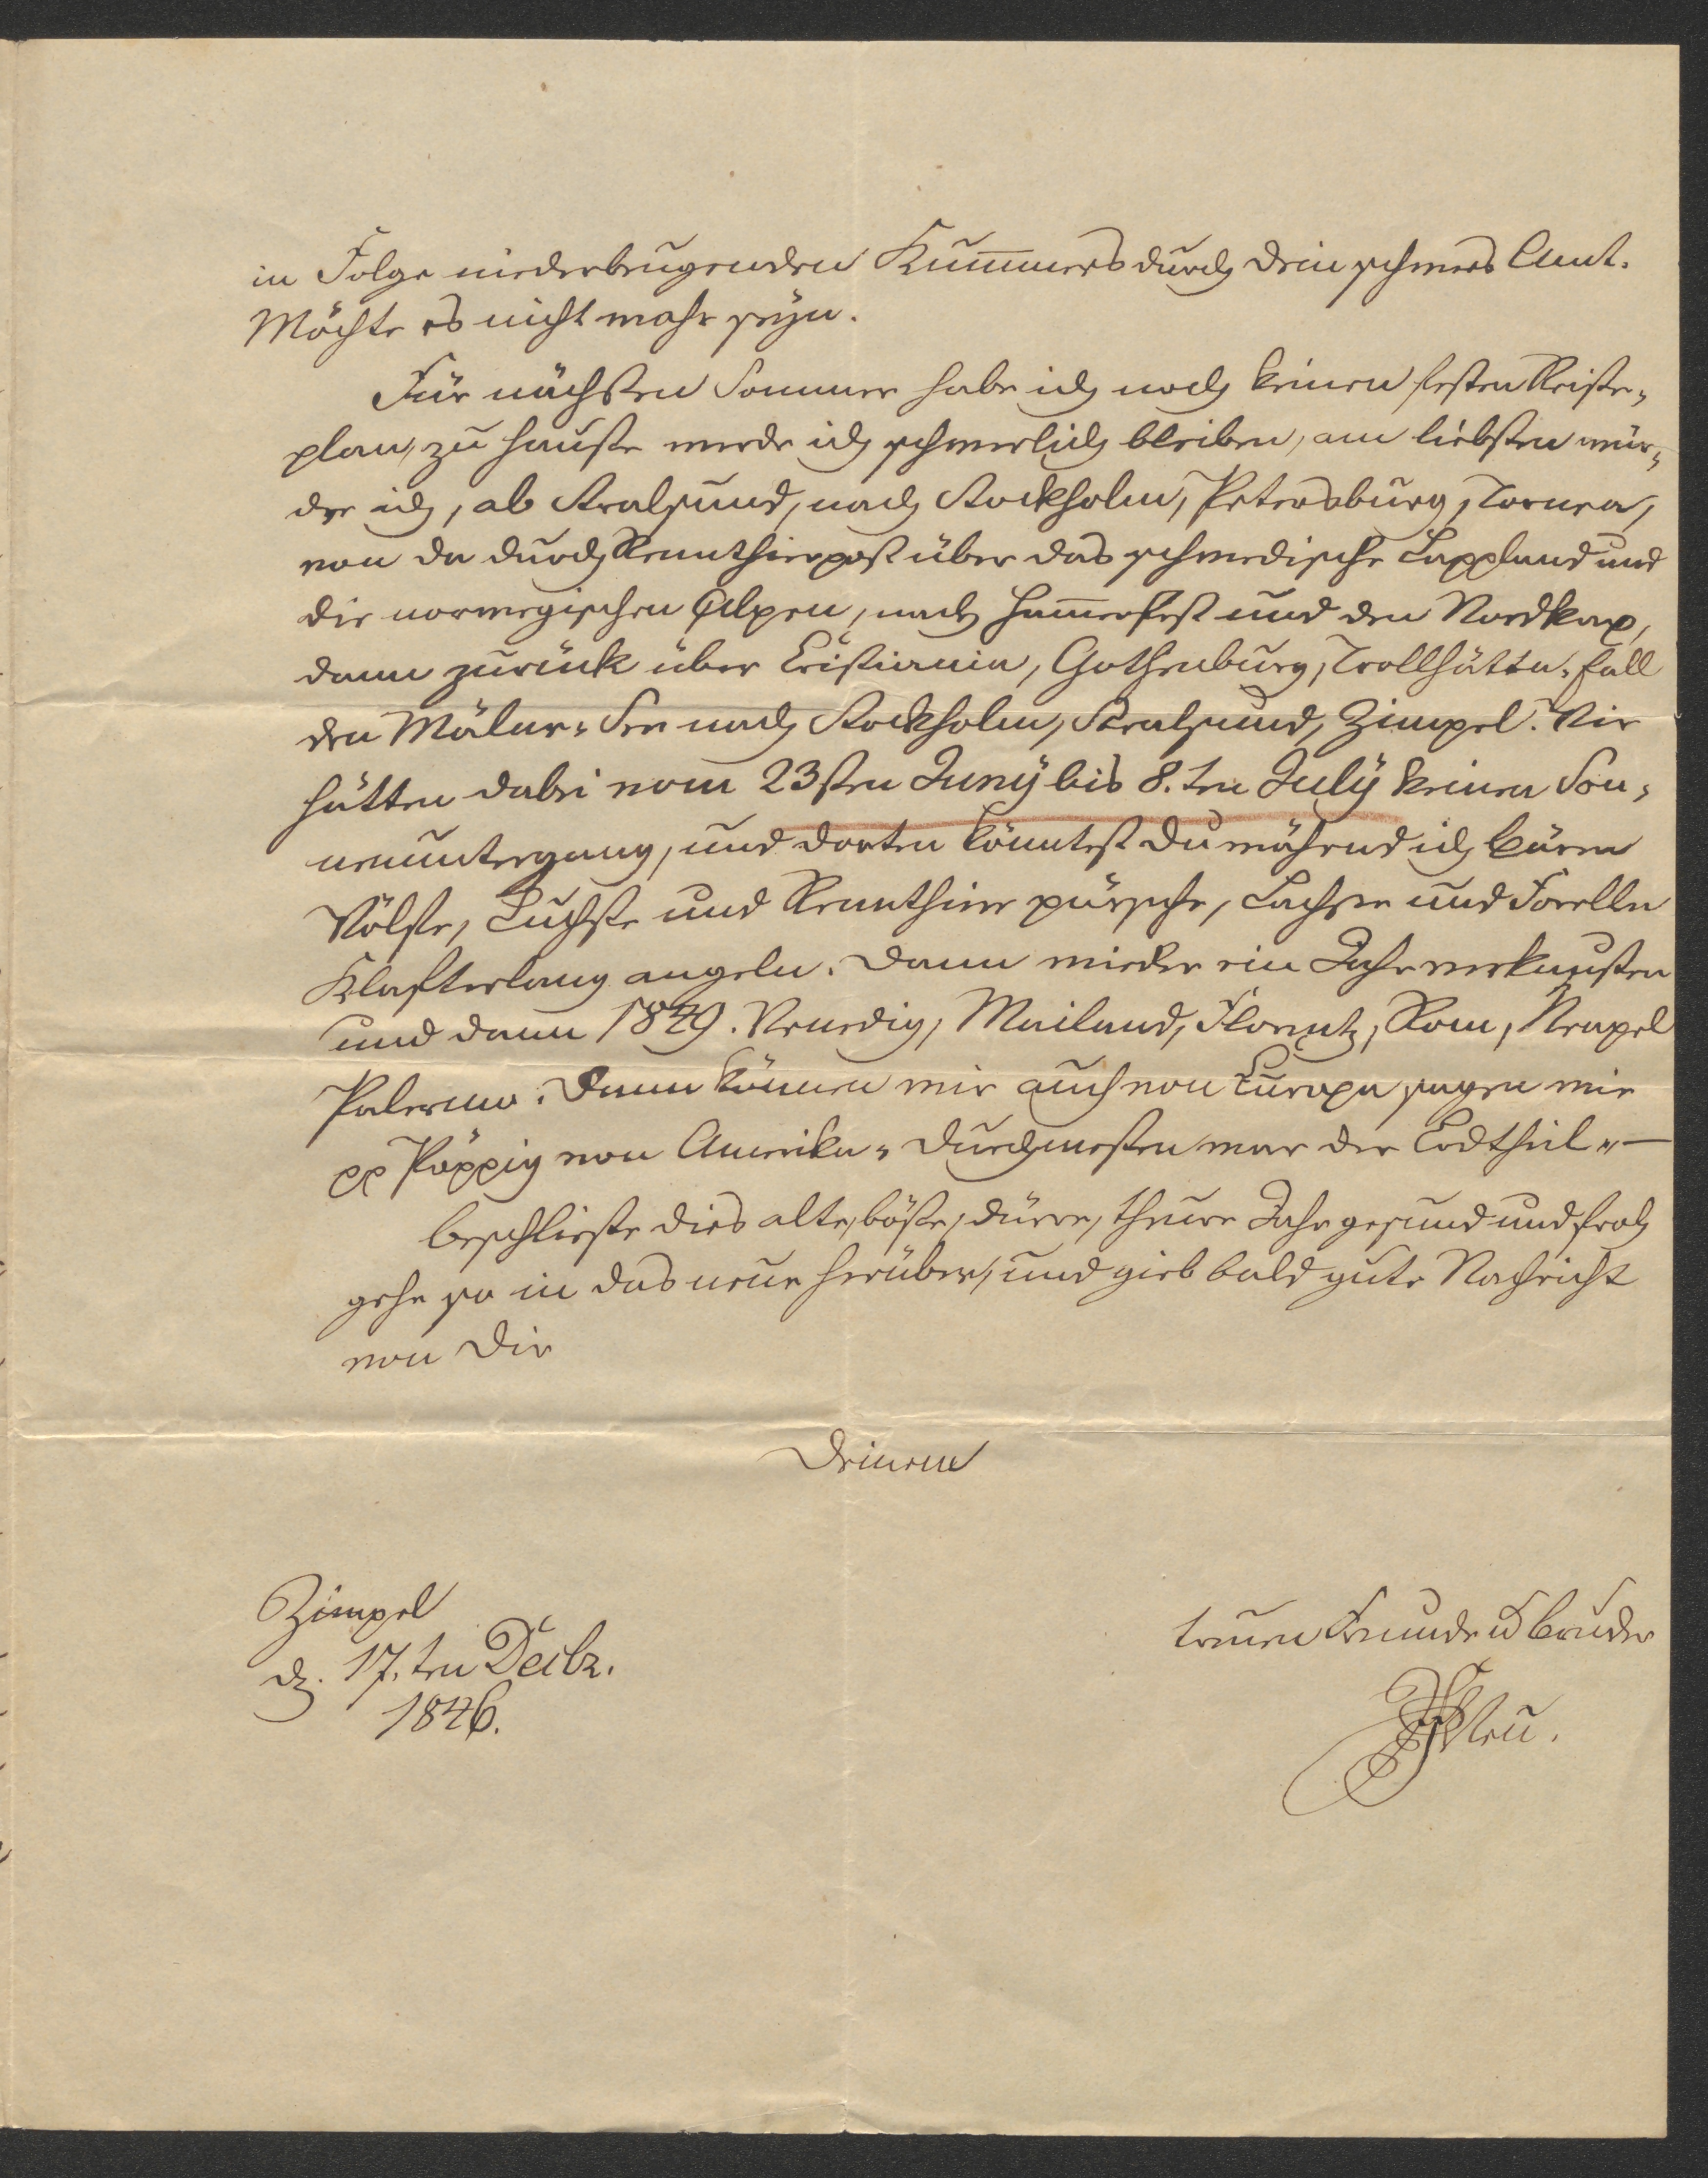 in Folge niederbeugenden Kummers durch dein schweres Amt.
Möchte es nicht wahr seÿn.
Für nächsten Sommer habe ich noch keinen festen Reise-
plan, zu Hauße werde ich schwerlich bleiben, am liebsten wür-
de ich, ab Stralsund, nach Stockholm, Petersburg, Tornea,
von da durch Rennthierpost über das schwedische Lappland und
die norwegischen Alpen, nach Ham̅erfest und den Nordkap,
dann zurück über Cristiania, Gothenburg, Trollhätta-Fall
den Mälar-See nach Stockholm, Stralsund, Zimpel. Wir
hätten dabei vom 23sten Junÿ bis 8.ten Julÿ keinen Son-
nenuntergang, und dorten könntest du während ich Bären
Wölfe, Luchse und Rennthier pürsche, Lachse und Forellen
Klafterlang angeln. Dann wieder ein Jahr verknusten
und dann 1849. Venedig, Mailand, Florentz, Rom, Neapel
Palermo. Dann können wir auch von Europa sagen wie
pp Pöppig von Amerika „ Durchmessen war der Erdtheil „ —
Beschließe dies alte, böße, dürre, theure Jahr gesund und froh
gehe so in das neue herüber, und gieb bald gute Nachricht
von Dir
Deinem
Zimpel
d. 17.ten Decbr.
1846.
treuen Freunde u Bruder